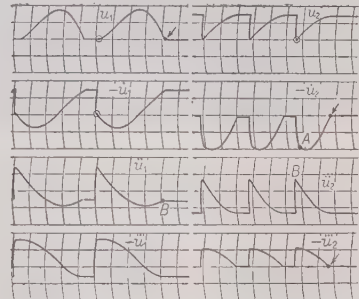 u₁
u₂
-u̇₁
-u̇₂
A
ü₁
B
B
ü₂
-u⃛₁
-u⃛₂